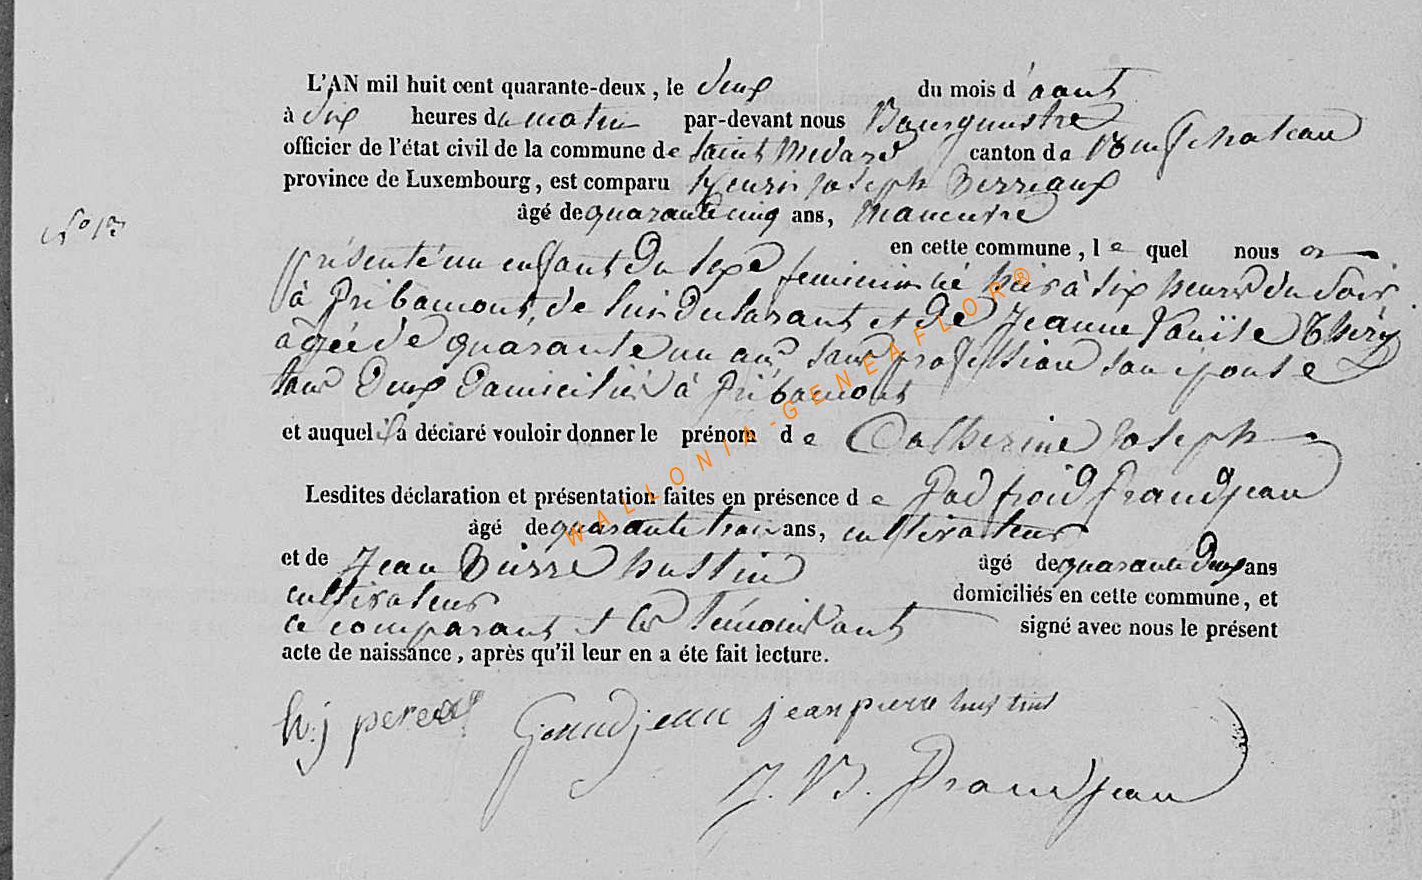 L'AN mil huit cent quarante-deux, le deux du mois d'aout
à dix heures du matin par-devant nous Bourgumestre
officier de l'état civil de la commune de Saint Medard canton de neufchateau
province de Luxembourg, est comparu henri joseph Perreaux
âgé de quarante cinq ans, manœuvre
N° 17
en cette commune, lequel nous a
présenté un enfant du sexe feminin né hier à six heures du Soir
à Pribamont, de lui declarant et de jeanne Thiry
agée de quarante un ans sans profession son épouse
tous deux domiciliés à Pribamont
et auquel il a déclaré vouloir donner le prénom de Catherine joseph
Lesdites déclaration et présentation faites en présence de Grandjean
âgé de quarante trois ans, cultivateur
et de Jean Pierre hustin âgé de quarante deux ans
cultivateur domiciliés en cette commune, et
le comparant et les témoins ont signé avec nous le présent
acte de naissance, après qu'il leur en a éte fait lecture.
h.j pereaux Grandjean jean pierre hustin
J. B. Grandjean
WALLONIA-GENEAFLOR®